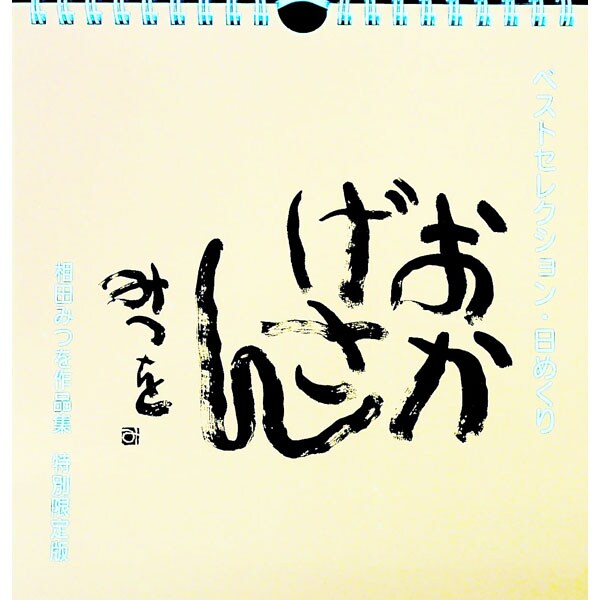 ベストセレクション・日めくり
おか
げさ
ん
みつを
相田みつを作品集 特別限定版